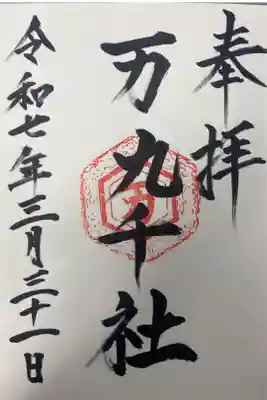 奉拝
万九千社
令和七年三月三十一日